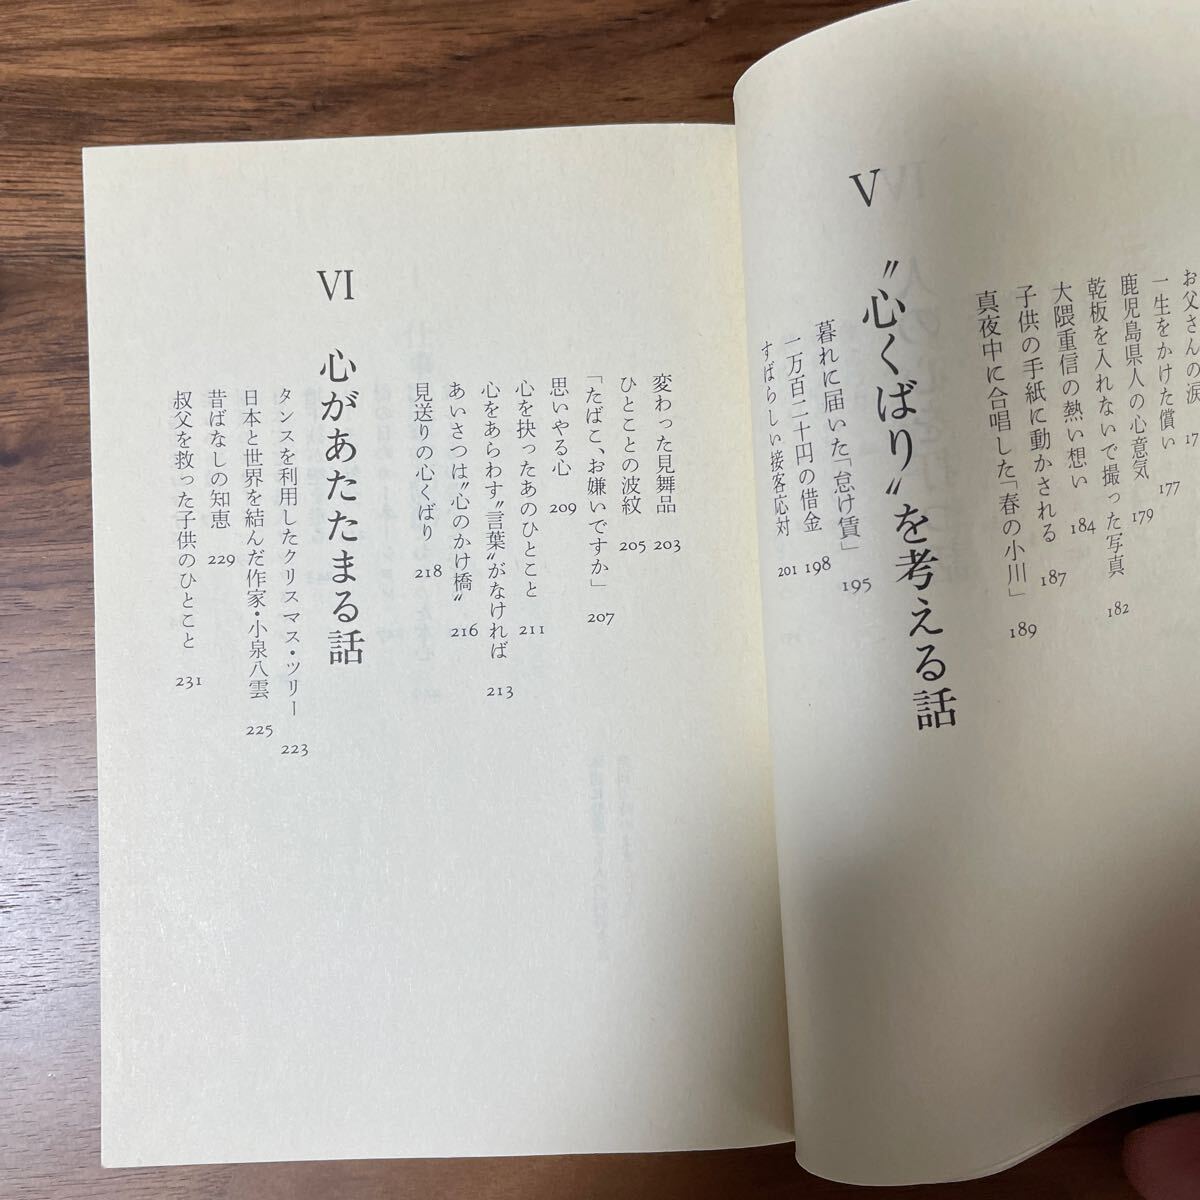 お父さんの涙 17
一生をかけた償い 177
鹿児島県人の心意気 179
乾板を入れないで撮った写真 182
大隈重信の熱い想い 184
子供の手紙に動かされる 187
真夜中に合唱した「春の小川」 189
V 〝心くばり〟を考える話
暮れに届いた「怠け賃」 195
一万百二十円の借金 198
すばらしい接客応対 201
変わった見舞品 203
ひとことの波紋 205
「たばこ、お嫌いですか」 207
思いやる心 209
心を抉ったあのひとこと 211
心をあらわす〝言葉〟がなければ 213
あいさつは〝心のかけ橋〟 216
見送りの心くばり 218
VI 心があたたまる話
タンスを利用したクリスマス・ツリー 223
日本と世界を結んだ作家・小泉八雲 225
昔ばなしの知恵 229
叔父を救った子供のひとこと 231